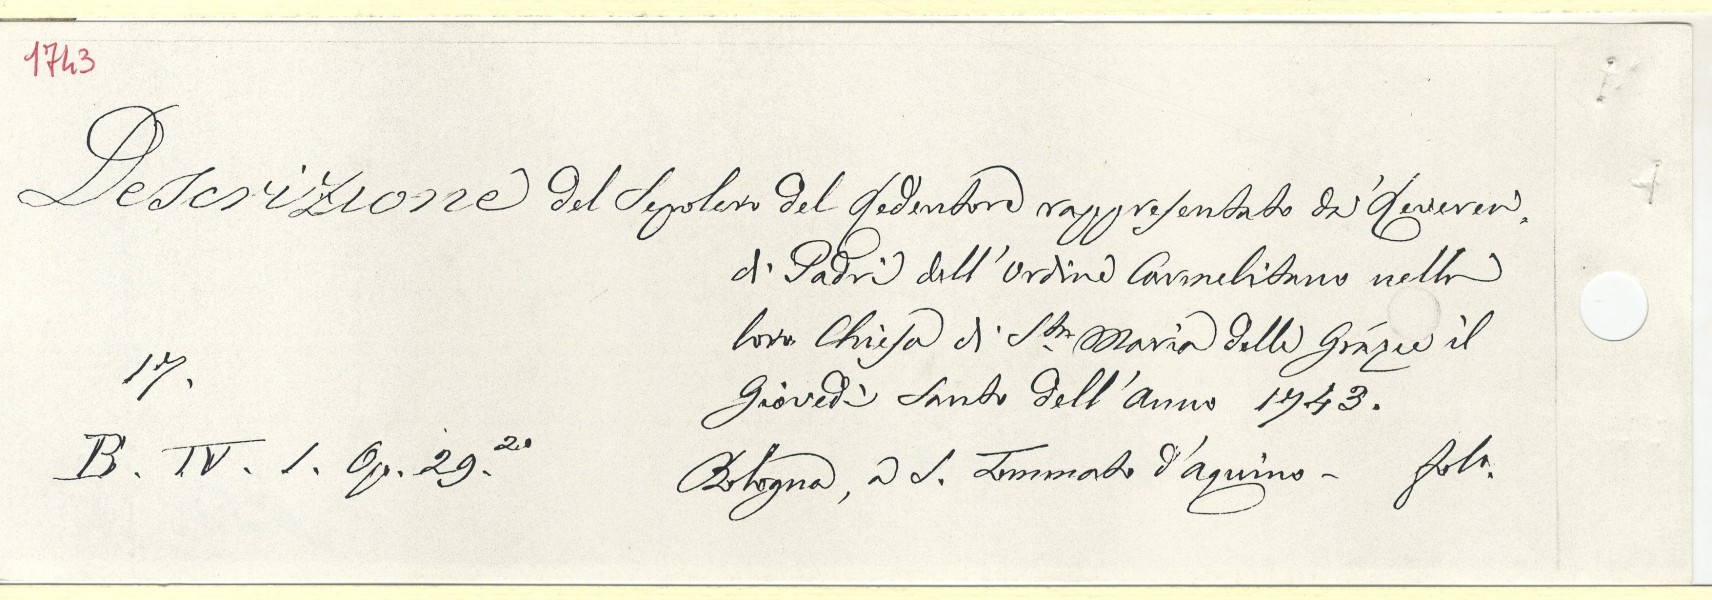 1743
Descrizione del Sepolcro del Redentore rappresentato da' Reveren,
di Padri dell'Ordine Carmelitano nella
loro Chiesa di Sta Maria delle Grazie il
17.
Giovedì Santo dell'Anno 1743.
B. IV. 1. Op. 29. 2o
Bologna, a S. Tommaso d'Aquino - folo.